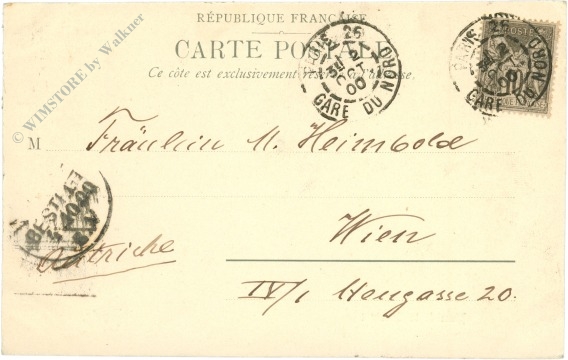 RÉPUBLIQUE FRANÇAISE
CARTE POSTALE
Ce côté est exclusivement réservé à l'adresse.
PARIS 25
OCT
00
GARE DU NORD
PARIS 25
00
GARE DU NORD
POSTES
© WIMSTORE by Walkner
M
Fräulein M. Heimbold
Wien
BESTELLT
4.10.00
Autriche
IV/1 Heugasse 20.